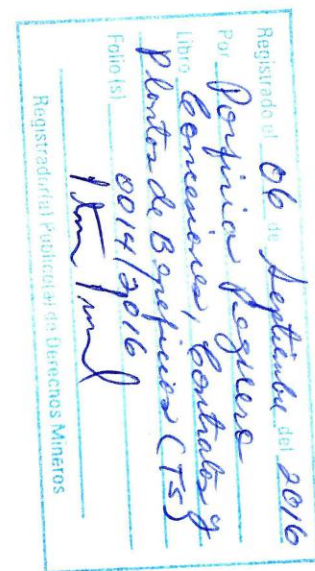 Registrado el 06 de Septiembre del 2016
Por Porfiria Peguero
Libro Concesiones, Contratos y
Plantas de Beneficios (Ts)
Folio (s) 0014/2016
Registrador(a) Público(a) de Derechos Mineros